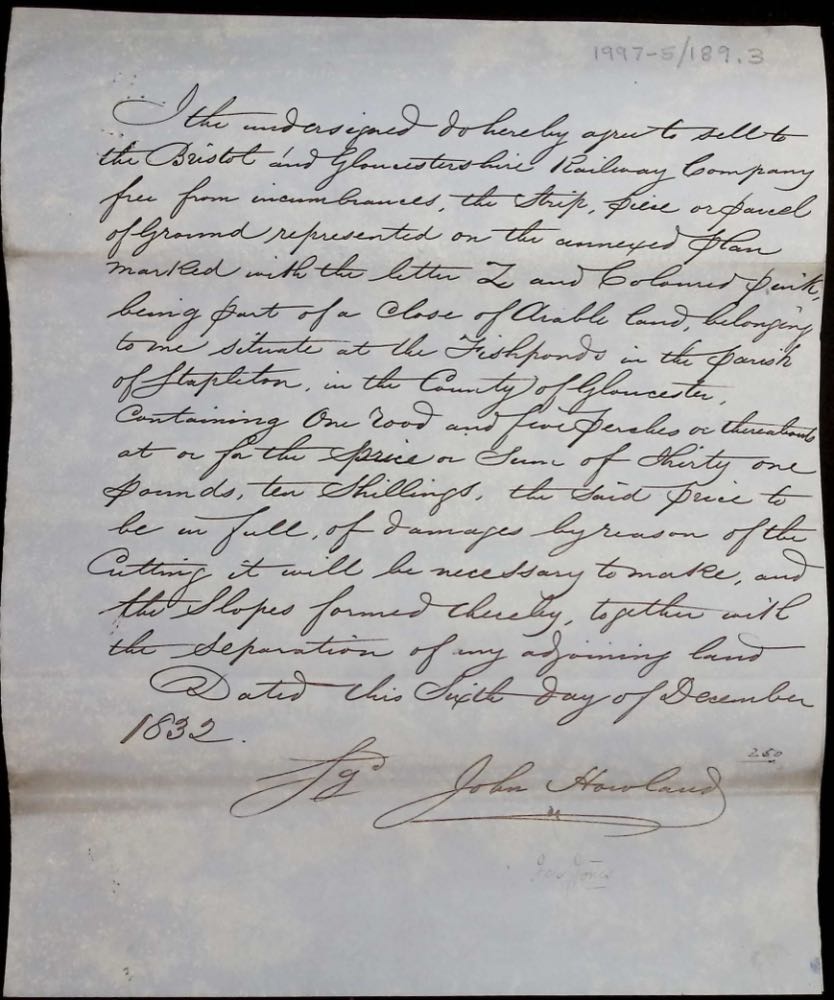 1997-5/189.3
I the undersigned do hereby agree to sell to
the Bristol and Gloucestershire Railway Company
free from incumbrances, the Strip, piece or parcel
of Ground represented on the annexed plan
marked with the letter Z and Coloured pink,
being part of a Close of Arable land, belonging
to me situate at the Fishponds in the parish
of Stapleton, in the County of Gloucester,
Containing One rood and five perches or thereabouts
at or for the price or Sum of Thirty one
pounds, ten Shillings, the said price to
be in full, of damages by reason of the
Cutting it will be necessary to make, and
the Slopes formed thereby, together with
the separation of my adjoining land
Dated this Sixth day of December
1832.
250
Sgd John Howland